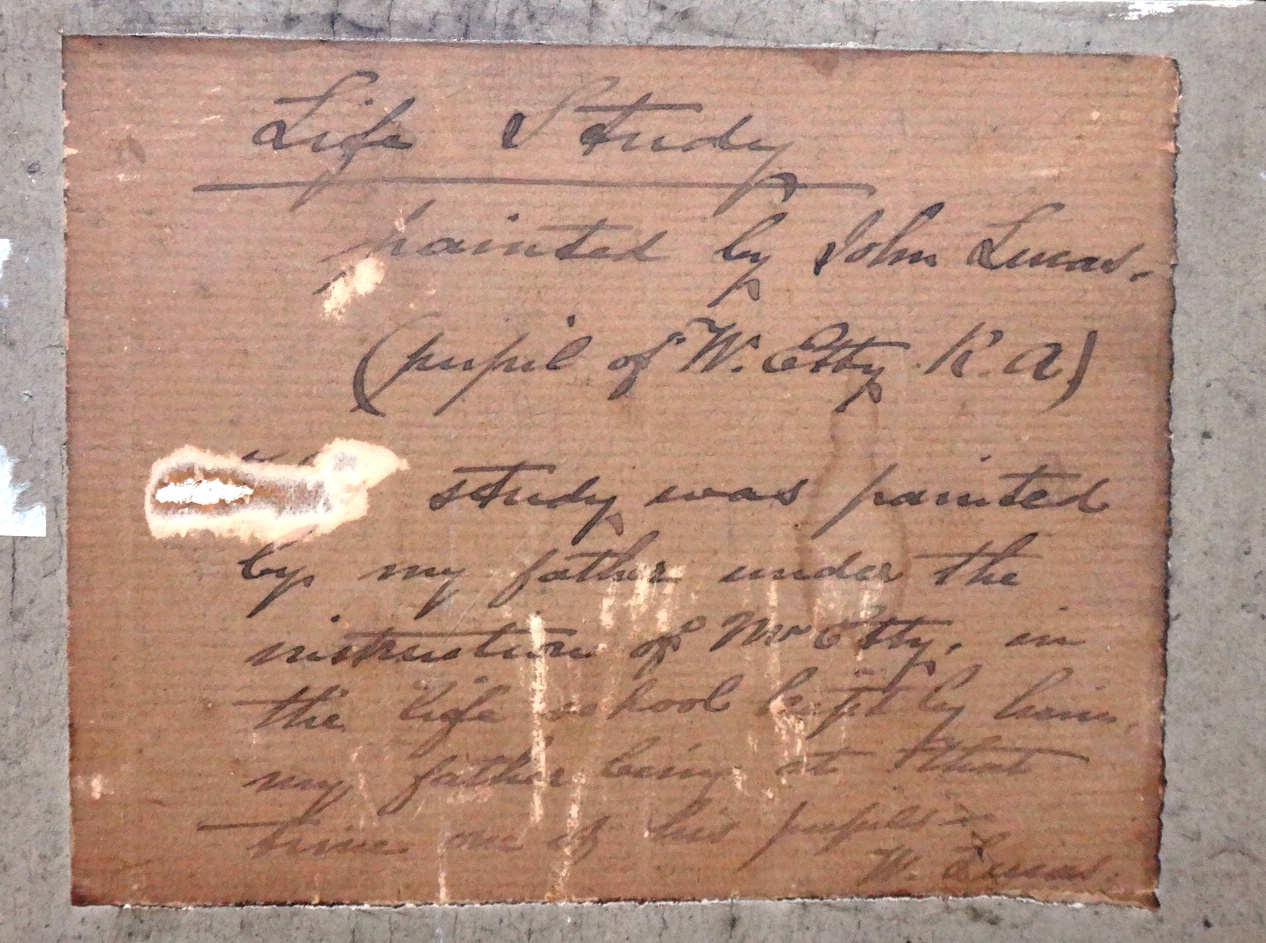 Life Study
painted by John Lucas.
(pupil of W. Etty. R. A)
study was painted
by my father under the
instruction of Mr Etty, in
the life school kept by him,
my father being at that
time one of his pupils –
W. Lucas.